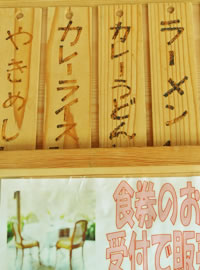 ラーメン
カレーうどん
カレーライス
やきめし
食券のお
受付で販